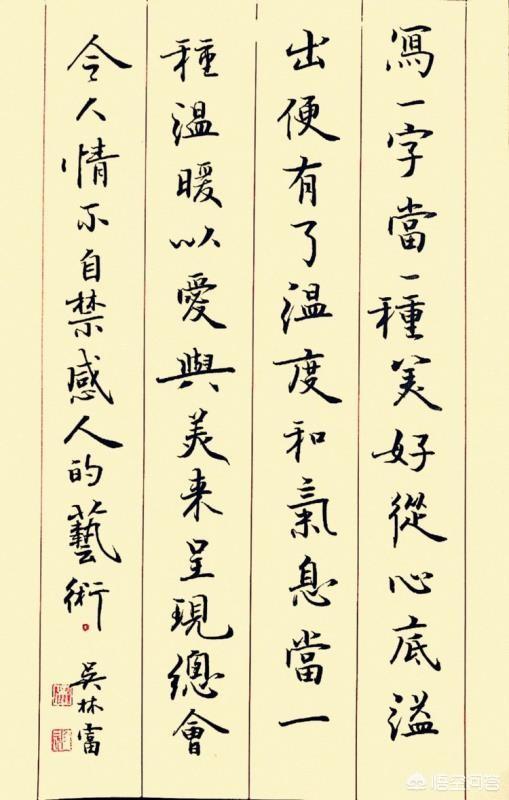 寫一字當一種美好從心底溢
出便有了溫度和氣息當一
種溫暖以愛與美来呈現總會
令人情不自禁感人的藝術。
吴林富
悟空问答